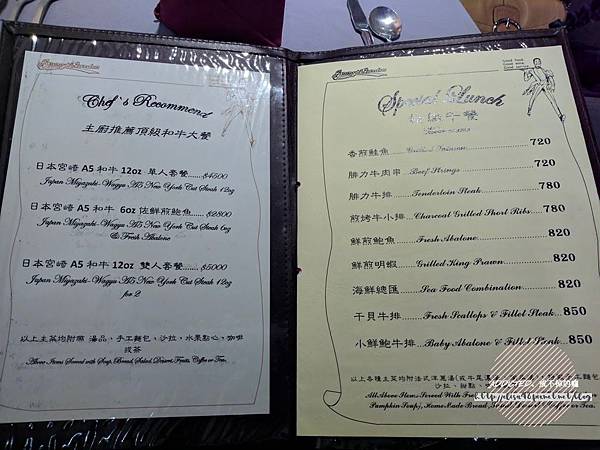 Chef's Recommend
主廚推薦頂級和牛大餐
日本宮崎 A5 和牛 12oz 單人套餐......$4500
Japan Miyazaki-Wagyu A5 New York Cut Steak 12oz
日本宮崎 A5 和牛 6oz 佐鮮煎鮑魚......$2800
Japan Miyazaki-Wagyu A5 New York Cut Steak 6oz
& Fresh Abalone
日本宮崎 A5 和牛 12oz 雙人套餐......$5000
Japan Miyazaki-Wagyu A5 New York Cut Steak 12oz
for 2
以上主菜均附贈 湯品、手工麵包、沙拉、水果點心、咖啡
或茶
Above Items Served with Soup, Bread, Salad, Dessert, Fruits, Coffee or Tea.
Special Lunch
香煎鮭魚......Grilled Salmon......720
腓力牛肉串......Beef Strings......720
腓力牛排......Tenderloin Steak......780
煎烤牛小排...Charcoal Grilled Short Ribs.....780
鮮煎鮑魚......Fresh Abalone......820
鮮煎明蝦......Grilled King Prawn......820
海鮮總匯......Sea Food Combination......820
干貝牛排......Fresh Scallops & Fillet Steak...850
小鮮鮑牛排...Baby Abalone & Fillet Steak...850
以上各種主菜均附法式洋蔥湯
沙拉、甜點
All Above Items Served With
Pumpkin Soup), HomeMade Bread,